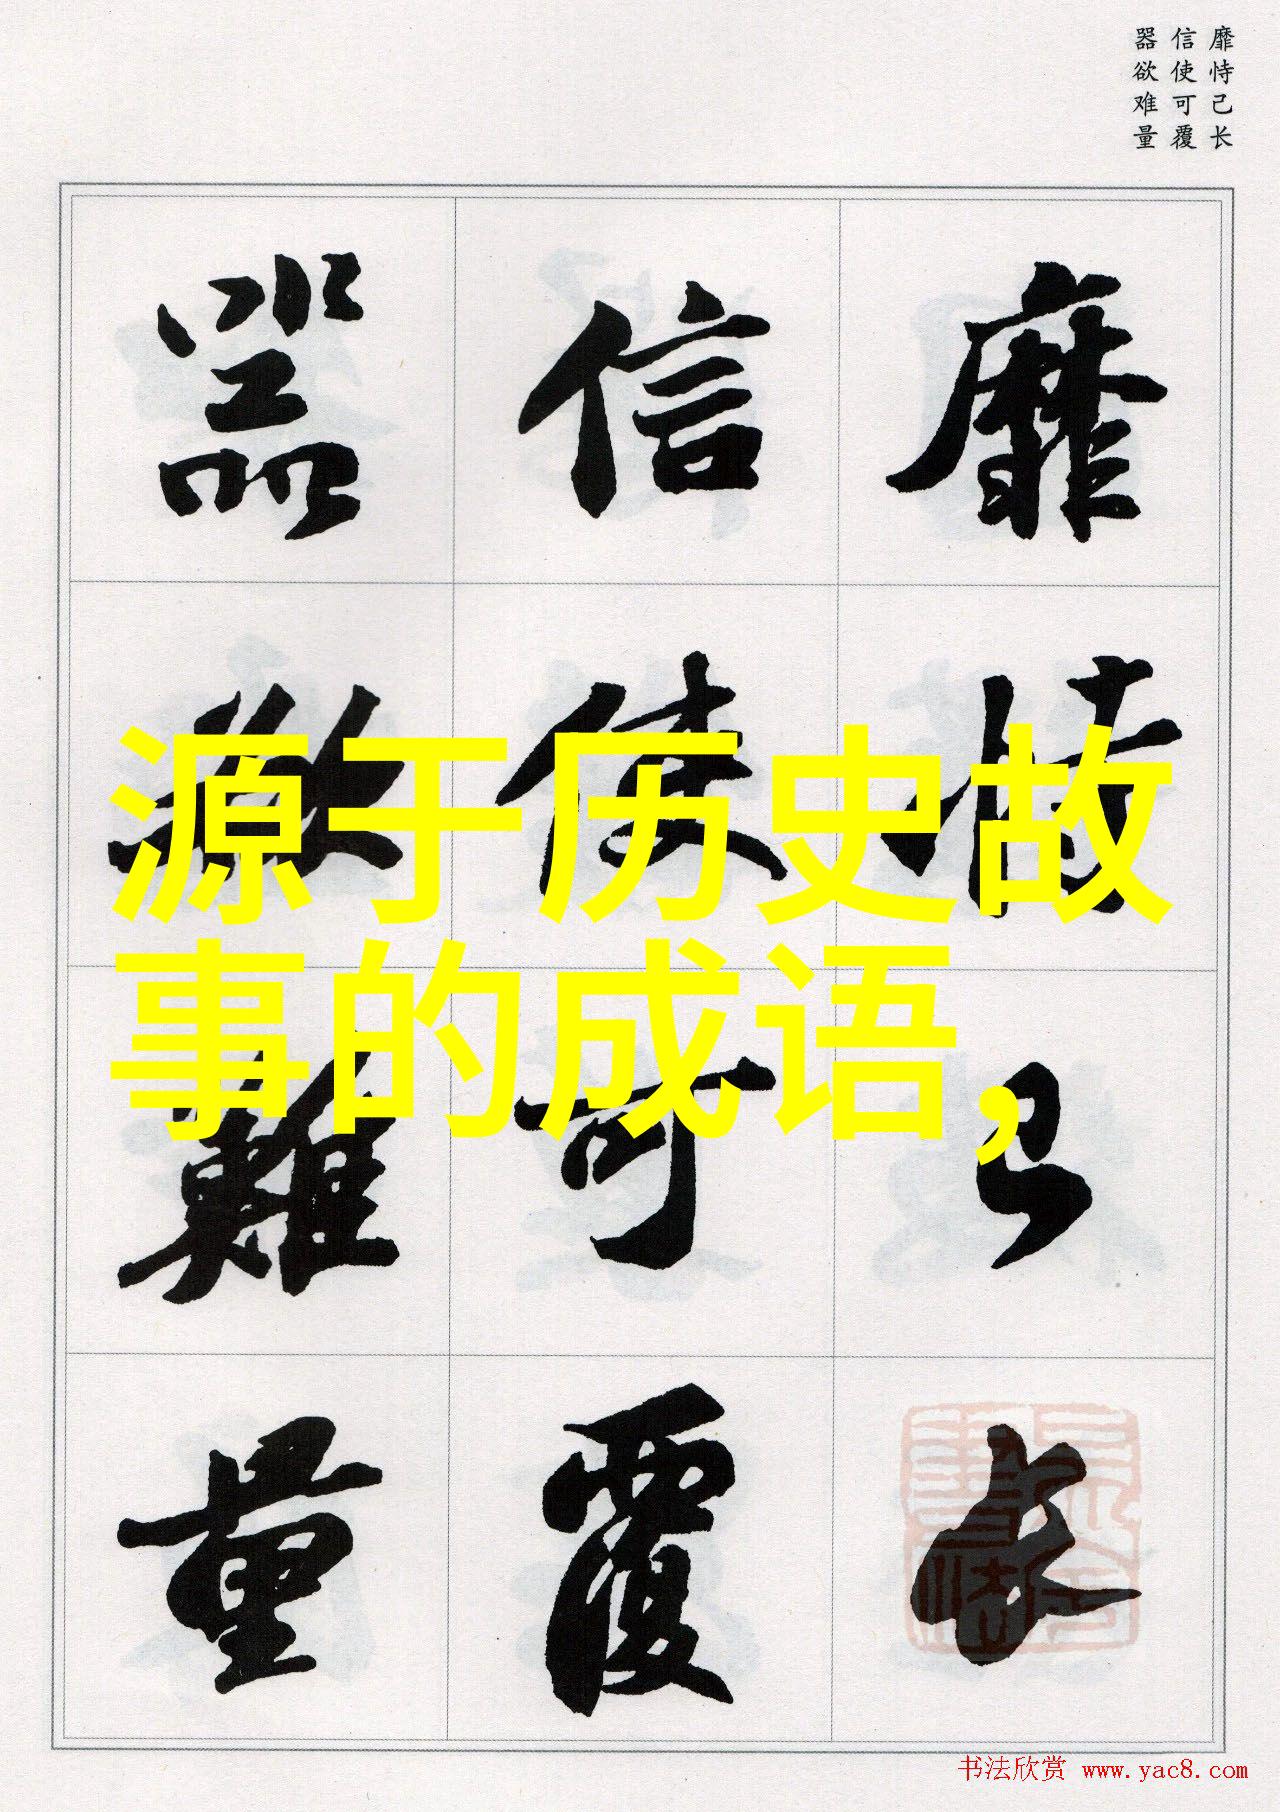 靡恃己长
信使可覆
器欲难量
靡恃己长
信使可覆
器欲難量
源于历史故
事的成语，
书法欣赏 www.yac8.com